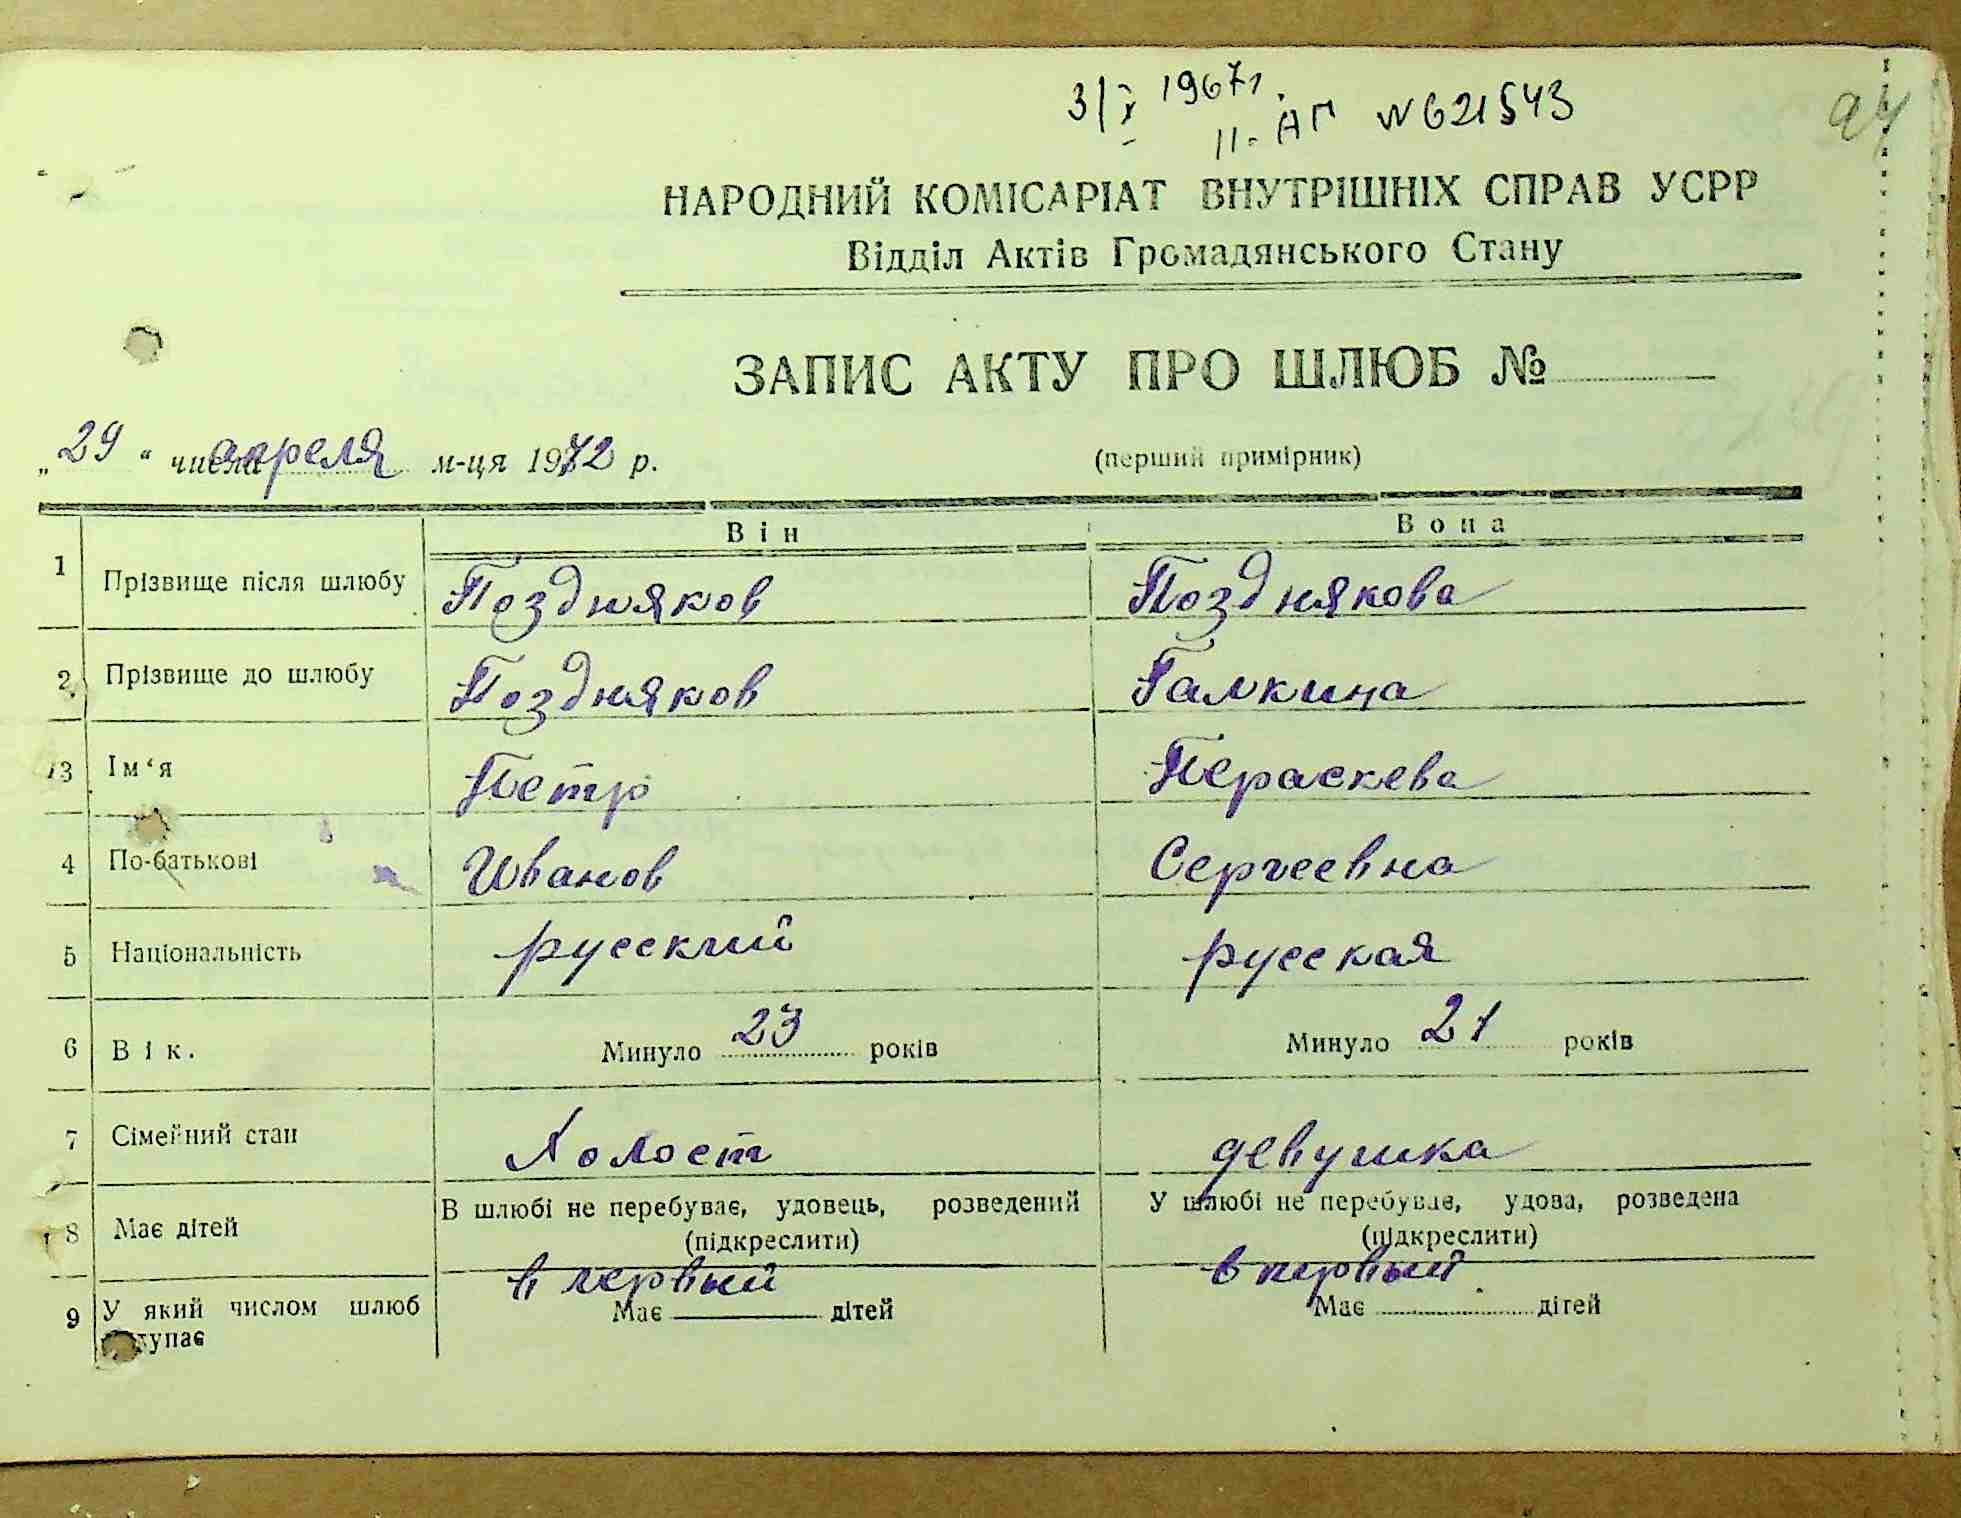 3/X 1967г.
II-АП №621543
94
НАРОДНИЙ КОМІСАРІАТ ВНУТРІШНІХ СПРАВ УСРР
Відділ Актів Громадянського Стану
ЗАПИС АКТУ ПРО ШЛЮБ №
„29" числа апреля м-ця 19 2 р. (перший примірник)
Він Вона
1 Прізвище після шлюбу Поздняков Позднякова
2 Прізвище до шлюбу Поздняков Галкина
3 Ім'я Петр Пераскева
4 По-батькові Иванов Сергеевна
5 Національність русский русская
6 Вік. Минуло 23 років Минуло 21 років
7 Сімейний стан Холост девушка
8 Має дітей В шлюбі не перебуває, удовець, розведений (підкреслити) У шлюбі не перебуває, удова, розведена (підкреслити)
в первый в первый
9 У який числом шлюб Має дітей Має дітей